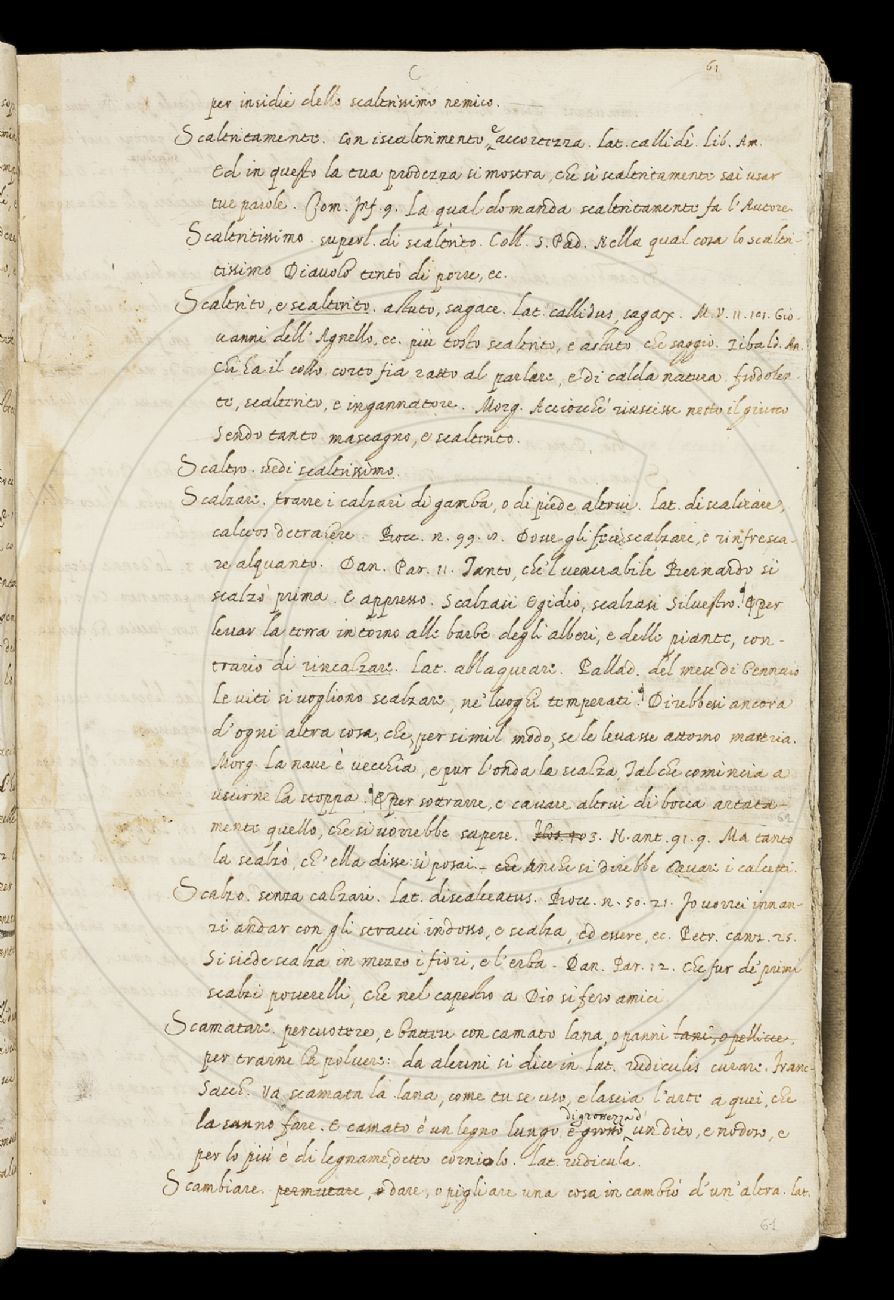 C 61
per insidie dello scaltrissimo nemico.
Scaltritamente. Con iscaltrimento e accortezza. Lat. callidè. Lib. Am.
Ed in questo la tua prodezza si mostra, che sì scaltritamente sai usar
tue parole. Com. Inf. 9. La qual domanda scaltritamente fa l'Autore.
Scaltritissimo. superl. di scaltrito. Coll. S. Pad. Nella qual cosa lo scaltri-
tissimo Diavolo tentò di porre, ec.
Scaltrito, e scalterito. astuto, sagace. Lat. callidus, sagax. M. V. 11. 101. Gio-
vanni dell'Agnello, ec. più tosto scaltrito, e astuto che saggio. Tibald. An.
Chi ha il collo corto fia ratto al parlare, e di calda natura frodolen-
te, scalterito, e ingannatore. Morg. Acciocchè riuscisse netto il giuoco
Sendo tanto mascagno, e scalterito.
Scaltro. vedi scaltrissimo.
Scalzare. trarre i calzari di gamba, o di piede altrui. Lat. discalceare,
calceos detrahere. Bocc. n. 99. Dove gli fece scalzare, e rinfresca-
re alquanto. Dan. Par. 11. Tanto, che 'l venerabile Bernardo si
scalzò prima. E appresso. Scalzasi Egidio, scalzasi Silvestro. E per
levar la terra intorno alle barbe degli alberi, e delle piante, con-
trario di rincalzare. Lat. ablaqueare. Pallad. del mese di Gennaio
Le viti si vogliono scalzare, ne' luoghi temperati. Direbbesi ancora
d'ogni altra cosa, che, per simil modo, se le levasse attorno materia.
Morg. La nave è vecchia, e pur l'onda la scalza, Tal che comincia a
uscirne la stoppa. E per sottrarre, e cavare altrui di bocca artata-
mente quello, che si vorrebbe sapere. N. ant. 91. 9. Ma tanto
la scalzò, ch'ella disse: sì posai. che Anche si direbbe Cavare i calcetti.
Scalzo. senza calzari. Lat. discalceatus. Bocc. n. 50. 21. Io vorrei innan-
zi andar con gli stracci indosso, e scalza, ed essere, ec. Petr. canz. 25.
Si siede scalza in mezzo i fiori, e l'erba. Dan. Par. 12. Che fur de' primi
scalzi poverelli, che nel capestro a Dio si fero amici
Scamatare. percuotere, e battere con camato lana, o panni lani, o pellicce,
per trarne la polvere: da alcuni si dice in Lat. rudiculis curare. Franc.
Sacch. Va scamata la lana, come tu se uso, e lascia l'arte a quei, che
la sanno fare. E camato è un legno lungo e grosso di grossezza d'un dito, e nodoso, e
per lo più è di legname, detto corniolo. Lat. rudicula.
Scambiare. permutare, o dare, o pigliare una cosa in cambio d'un'altra. Lat.
61